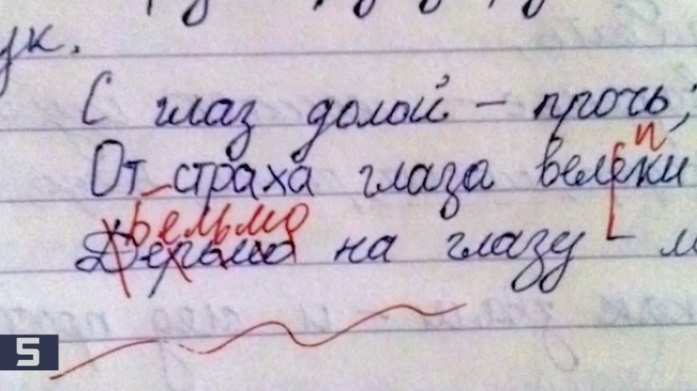 ук.
С глаз долой – прочь;
п
От страха глаза велеки
бельмо
Дерьмо на глазу – м
5